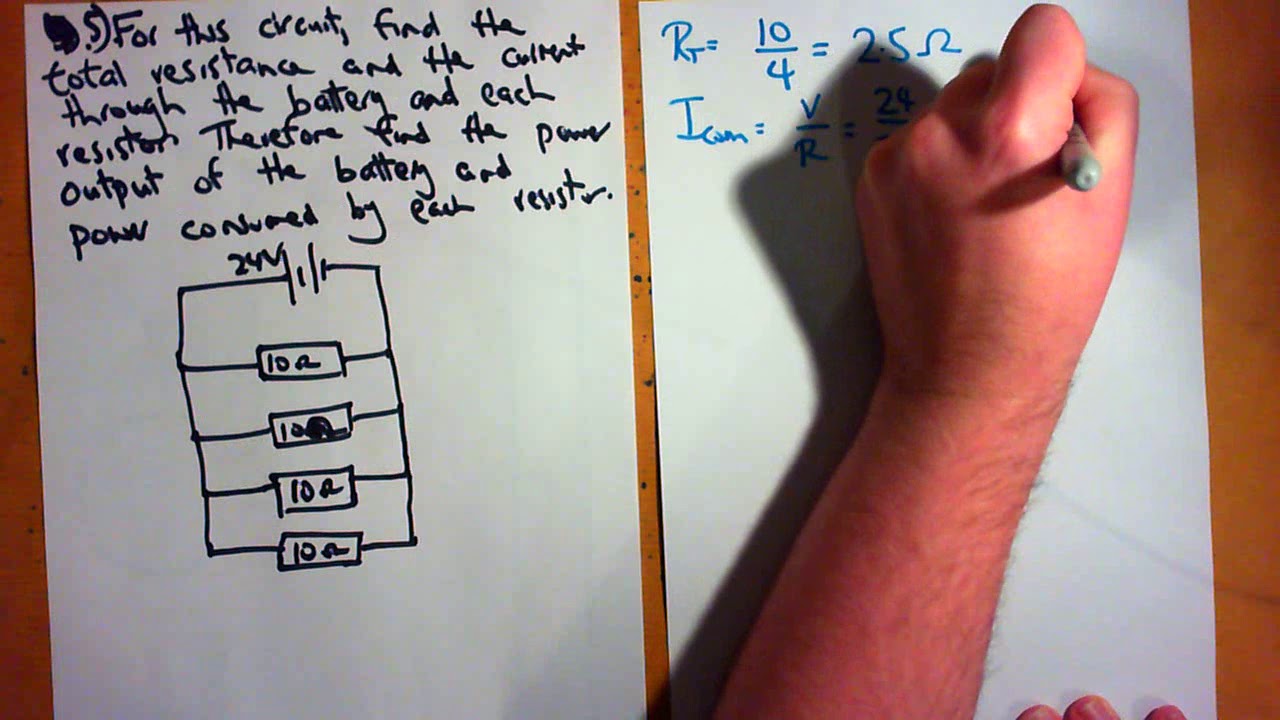 5) For this circuit, find the
total resistance and the current
through the battery and each
resistor. Therefore find the power
output of the battery and
power consumed by each resistor.
24V
10Ω
10Ω
10Ω
10Ω
R_T = 10/4 = 2.5 Ω
I_com = V/R = 24